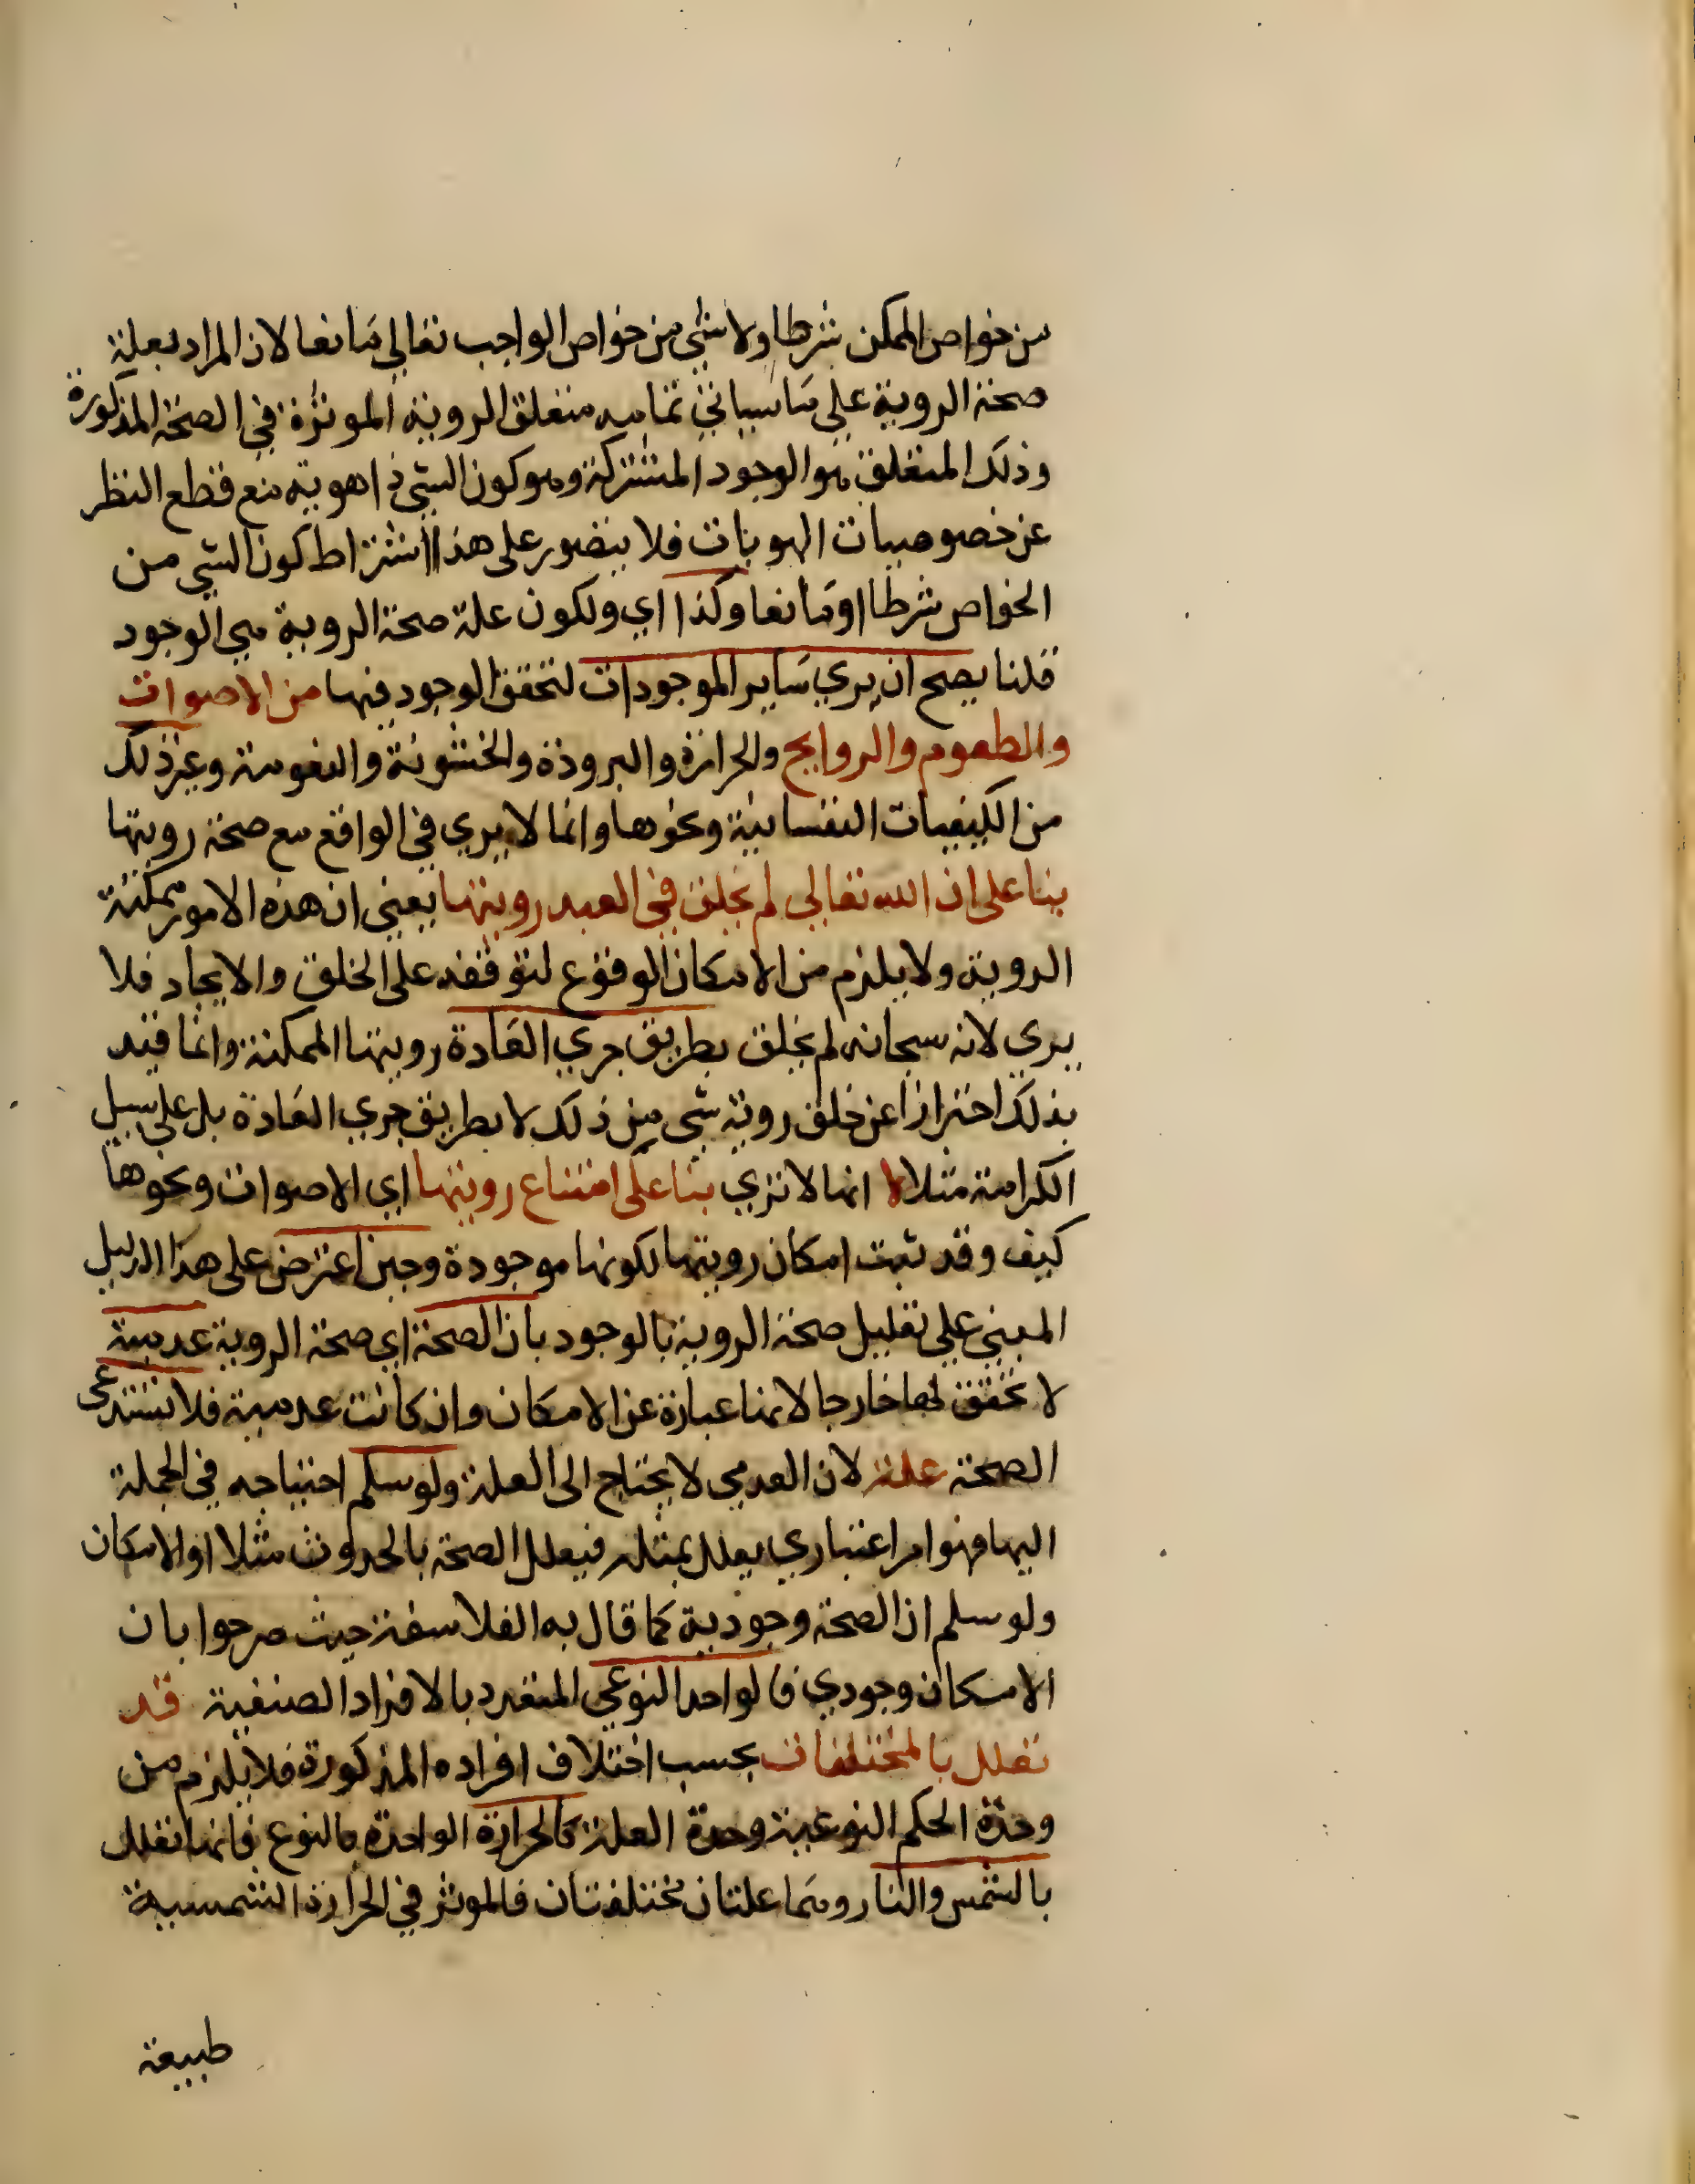 من خواص الممكن شرطا ولا شي من خواص الواجب تعالي مانعا لان المراد بعلة
صحة الروية علي ما سياتي تماميه متعلق الروية الموثرة في الصحة المذكورة
وذلك المتعلق هو الوجود المشتركة وهو كون الشي ذا هوية مع قطع النظر
عن خصوصيات الهويات فلا يتصور على هذا اشتراط كون الشي من
الخواص شرطا او مانعا وكذا اي ولكون علة صحة الروية هي الوجود
قلنا يصح ان يري ساير الموجودات لتحقق الوجود فيها من الاصوات
والطعوم والروايح والحرارة والبرودة والخشونة والنعومة وغير ذلك
من الكيفيات النفسانية ونحوها وانما لا يري في الواقع مع صحة رويتها
بنا على ان الله تعالي لم يخلق في العبد رويتها يعني ان هذه الامور ممكنة
الروية ولا يلزم من الامكان الوقوع لتوقفه على الخلق والايجاد فلا
يري لانه سبحانه لم يخلق بطريق جري العادة رويتها الممكنة وانما قيد
بذلك احترازا عن خلق روية شي من ذلك لا بطريق جري العادة بل علي سبيل
الكرامة مثلا لا انها لا تري بنا على امتناع رويتها اي الاصوات ونحوها
كيف وقد ثبت امكان رويتها لكونها موجودة وحين اعترض على هذا الدليل
المبني علي تعليل صحة الروية بالوجود بان الصحة اي صحة الروية عدمية
لا تحقق لها خارجا لانها عبارة عن الامكان وان كانت عدمية فلا تستدعي
الصحة علة لان العدمي لا يحتاج الى العلة ولو سلم احتياجه في الجملة
اليها فهو امر اعتباري يعلل بمثله فيعلل الصحة بالحدوث مثلا او الامكان
ولو سلم ان الصحة وجودية كما قال به الفلاسفة حيث صرحوا بان
الامكان وجودي فالواحد النوعي المتعدد بالافراد الصنفية قد
تعلل بالمختلفات بحسب اختلاف افراده المذكورة فلا يلزم من
وحدة الحكم النوعية وحدة العلة كالحرارة الواحدة بالنوع فانها تعلل
بالشمس والنار وهما علتان مختلفتان فالموثر في الحرارة الشمسية
طبيعة